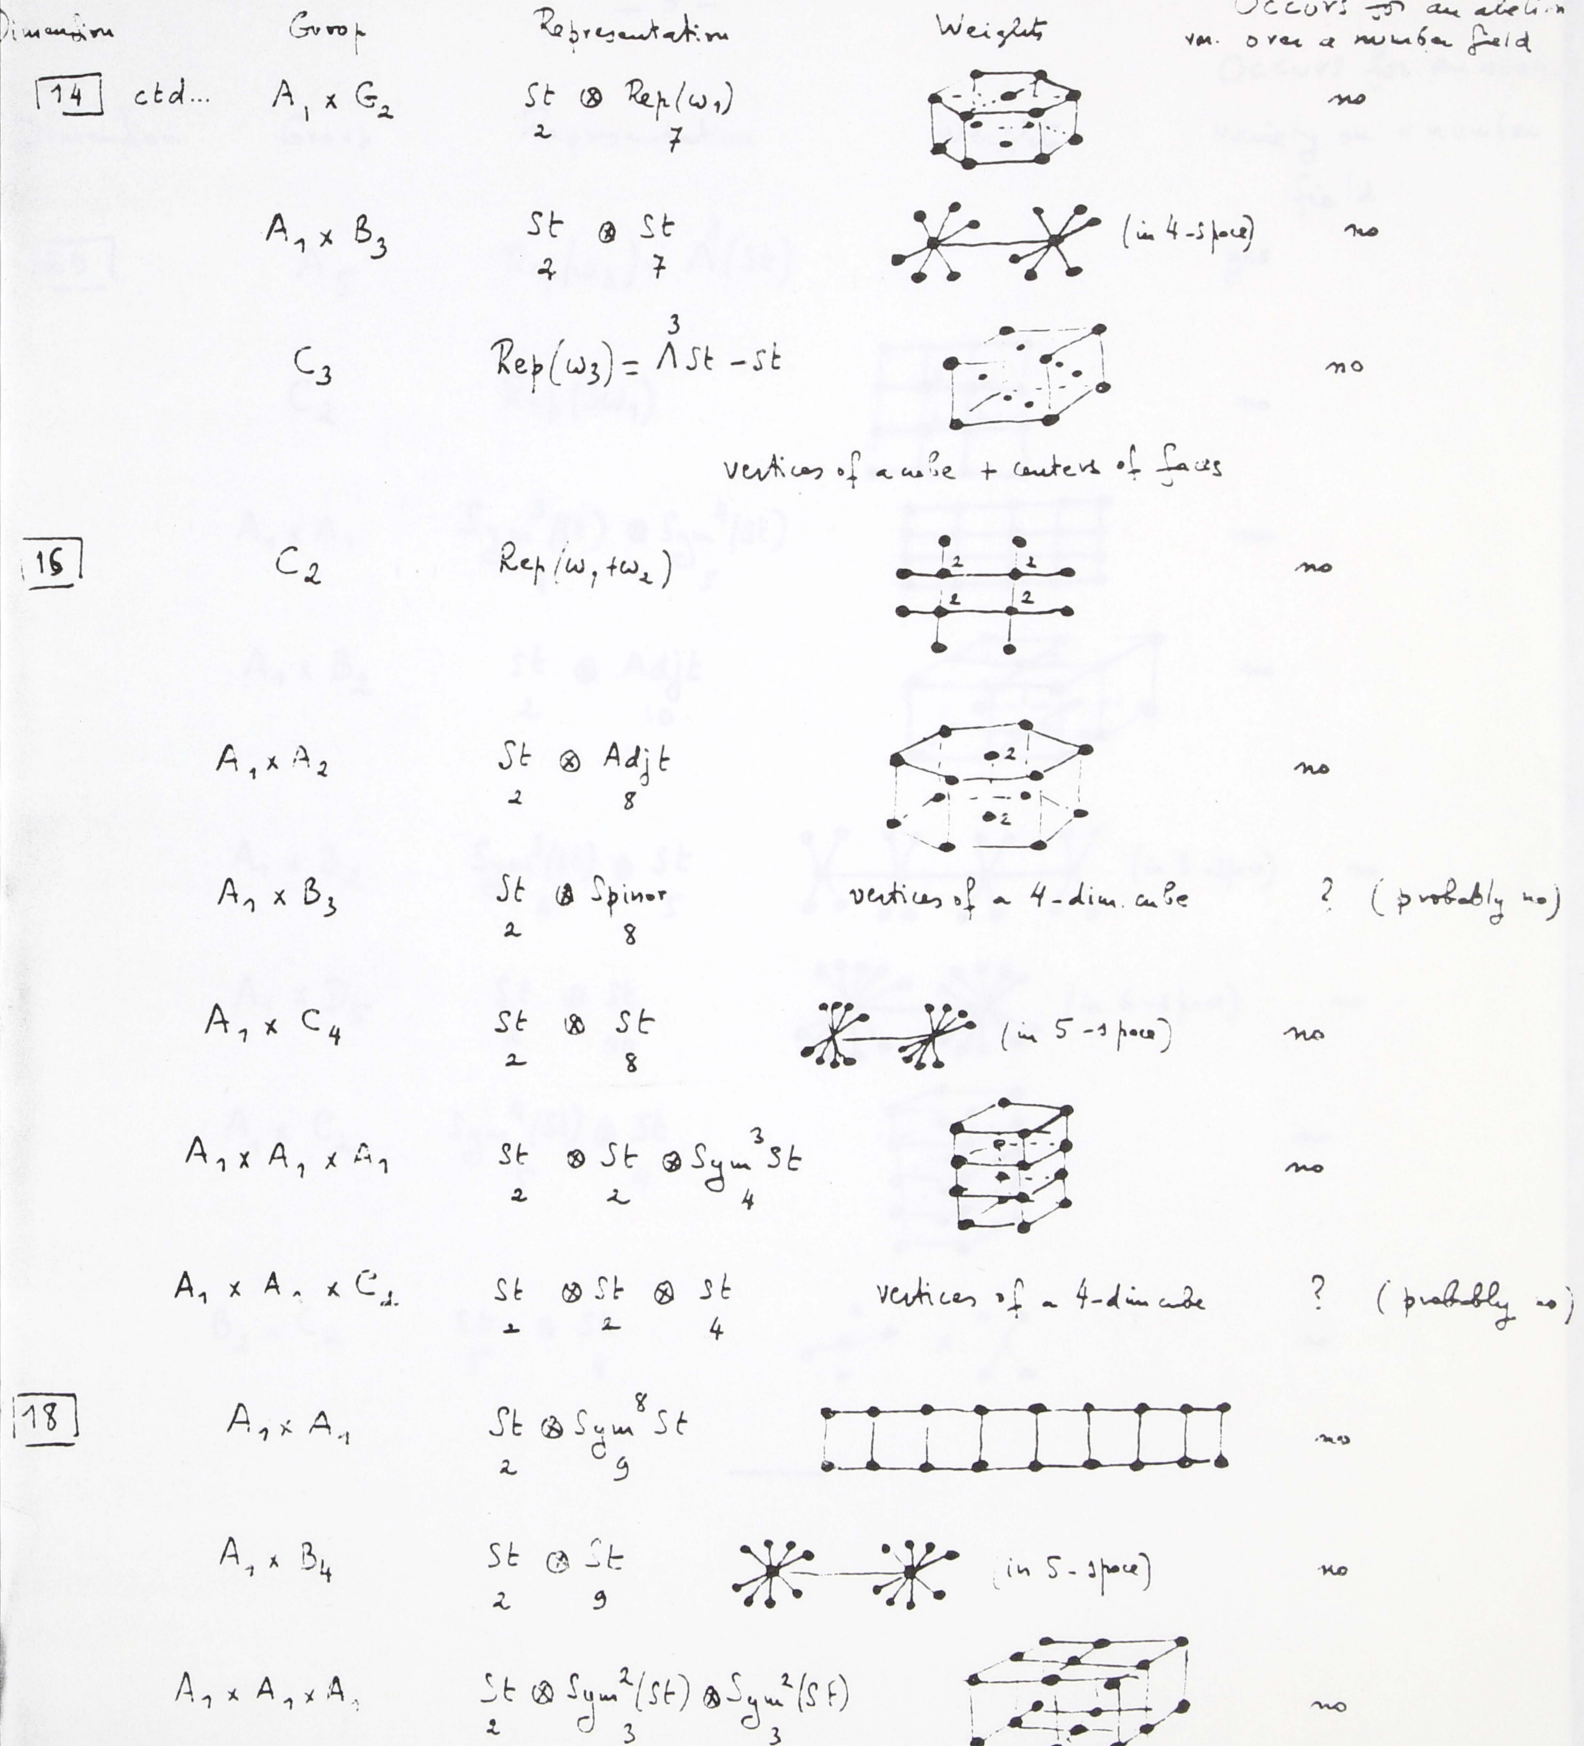 Dimension Group Representation Weights Occurs for an abelian
var. over a number field
14 ctd... A₁ × G₂ St ⊗ Rep(ω₁) no
2 7
A₁ × B₃ St ⊗ St (in 4-space) no
2 7
C₃ Rep(ω₃) = Λ³St - St no
vertices of a cube + centers of faces
16 C₂ Rep(ω₁+ω₂) 2 2 no
2 2
A₁ × A₂ St ⊗ Adjt 2 no
2 8 2
A₁ × B₃ St ⊗ Spinor vertices of a 4-dim. cube ? (probably no)
2 8
A₁ × C₄ St ⊗ St (in 5-space) no
2 8
A₁ × A₁ × A₁ St ⊗ St ⊗ Sym³St no
2 2 4
A₁ × A₁ × C₂ St ⊗ St ⊗ St vertices of a 4-dim cube ? (probably no)
2 2 4
18 A₁ × A₁ St ⊗ Sym⁸St no
2 9
A₁ × B₄ St ⊗ St (in 5-space) no
2 9
A₁ × A₁ × A₁ St ⊗ Sym²(St) ⊗ Sym²(St) no
2 3 3